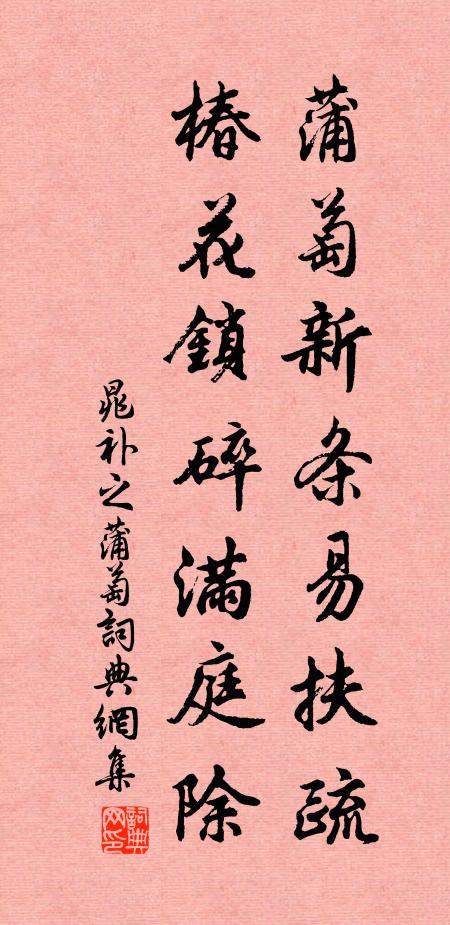 蒲萄新条易扶疏
椿花鎖碎满庭除
晁补之蒲萄詞典網集
詞典网印